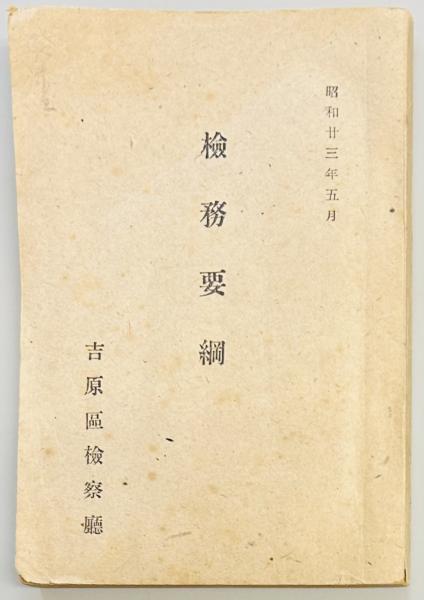 昭和廿三年五月
檢務要綱
吉原區檢察廳